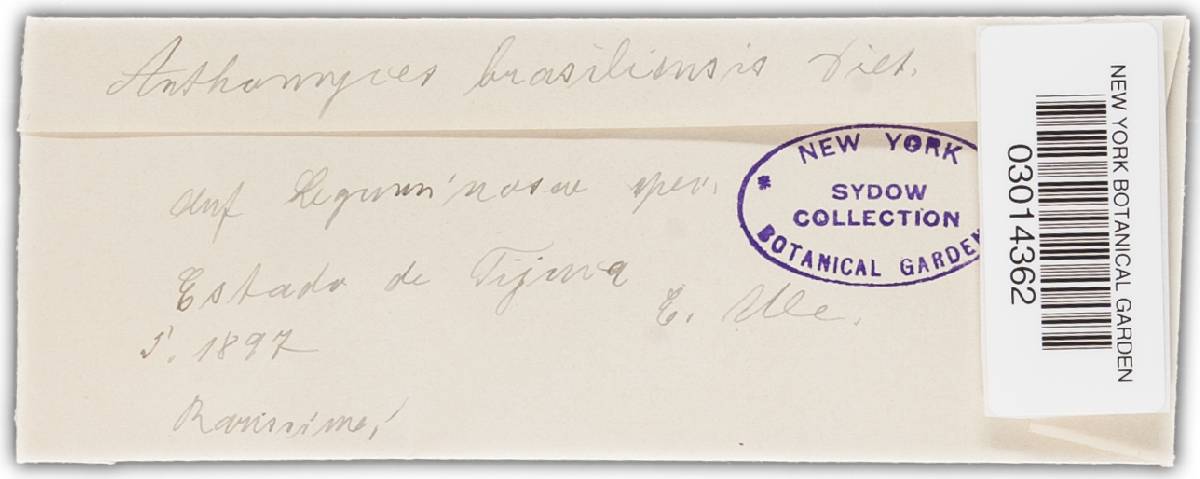 Anthomyces brasiliensis Diet.
auf Leguminosae spec.
Estado de Tijuca
E. Ule.
5. 1897
Rarissime!
NEW YORK
SYDOW
COLLECTION
* BOTANICAL GARDEN
NEW YORK BOTANICAL GARDEN
03014362